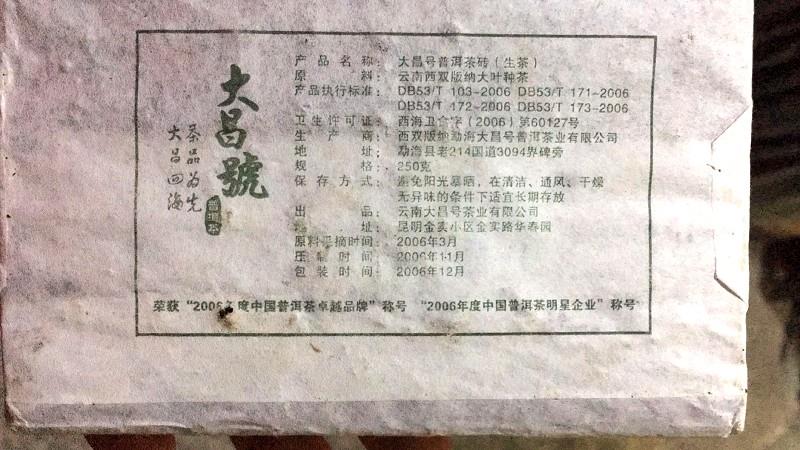 大昌號
茶品为先
大昌四海
普洱茶
产品名称：大昌号普洱茶砖（生茶）
原料：云南西双版纳大叶种茶
产品执行标准：DB53/T 103-2006 DB53/T 171-2006
DB53/T 172-2006 DB53/T 173-2006
卫生许可证：西海卫食字（2006）第60127号
生产商：西双版纳勐海大昌号普洱茶业有限公司
地址：勐海县老214国道3094界碑旁
规格：250克
保存方式：避免阳光暴晒，在清洁、通风、干燥
无异味的条件下适宜长期存放
出品：云南大昌号茶业有限公司
址：昆明金实小区金实路华春园
原料采摘时间：2006年3月
压制时间：2006年11月
包装时间：2006年12月
荣获“2006年度中国普洱茶卓越品牌”称号 “2006年度中国普洱茶明星企业”称号